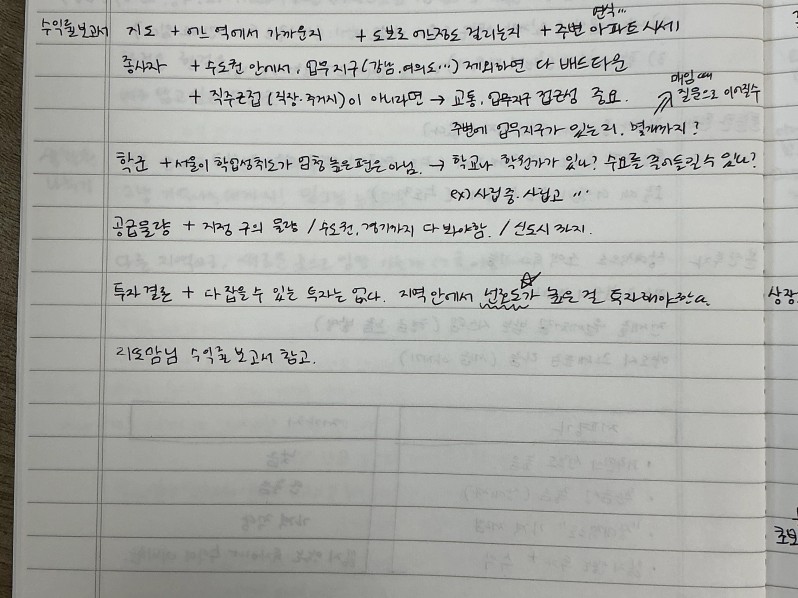 연식...
수익률보고서 지도 + 어느 역에서 가까운지 + 도보로 어느정도 걸리는지 + 주변 아파트 시세!
종사자 + 수도권 안에서, 업무지구(강남, 여의도...) 제외하면 다 베드타운
매임 때
+ 직주근접 (직장·주거시)이 아니라면 → 교통, 업무지구 접근성 중요. 질문으로 이어질수
주변에 업무지구가 있는지, 몇개까지?
학군 + 서울이 학업성취도가 엄청 높은 편은 아님. → 학교나 학원가가 있나? 수요를 끌어들일 수 있나?
ex) 사립중. 사립고 ...
공급물량 + 지정 구의 물량 / 수도권, 경기까지 다 봐야함. / 신도시 까지.
투자결론 + 다 잡을 수 있는 투자는 없다. 지역 안에서 선호도가 높은 걸 투자해야한다.
상장
리도맘님 수익률 보고서 참고.
초보